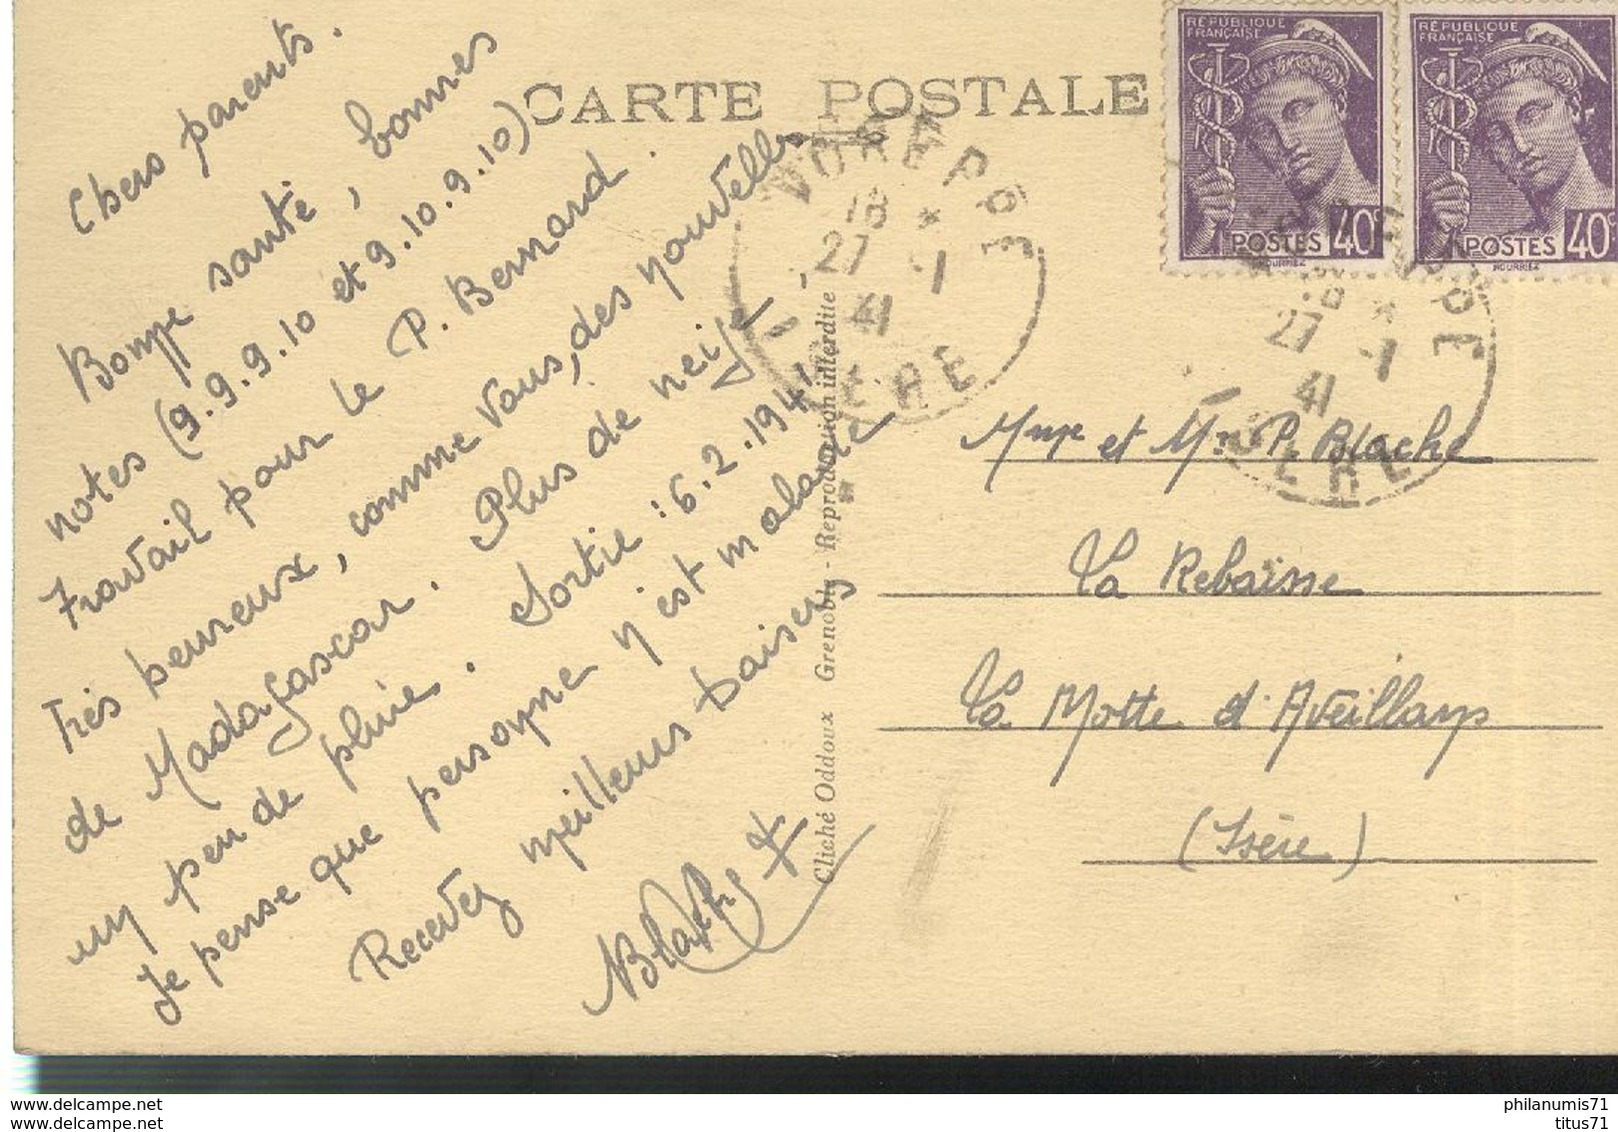 CARTE POSTALE
RÉPUBLIQUE
FRANÇAISE
POSTES 40c
RÉPUBLIQUE
FRANÇAISE
POSTES 40c
VOREPPE
18 *
27 -1
41
ISERE
18 *
27 -1
41
ISERE
Chers parents.
Bonne santé, bonnes
notes (9.9.9.10 et 9.10.9.10)
Travail pour le P. Bernard.
Très heureux, comme vous, des nouvelles
de Madagascar. Plus de neige,
un peu de pluie. Sortie : 6.2.1941
Je pense que personne n'est malade
Recevez meilleurs baisers
Cliché Oddoux Grenoble - Reproduction interdite
Mme et Mr P. Blache
La Rebaisse
La Motte d'Aveillans
(Isère)
www.delcampe.net
www.delcampe.net
philanumis71
titus71